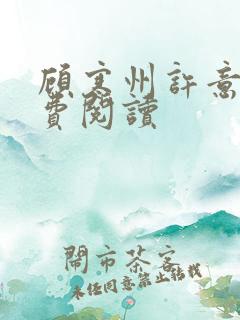 顧寒州許意
費閱讀
鬧市茶客
未经同意禁止转载